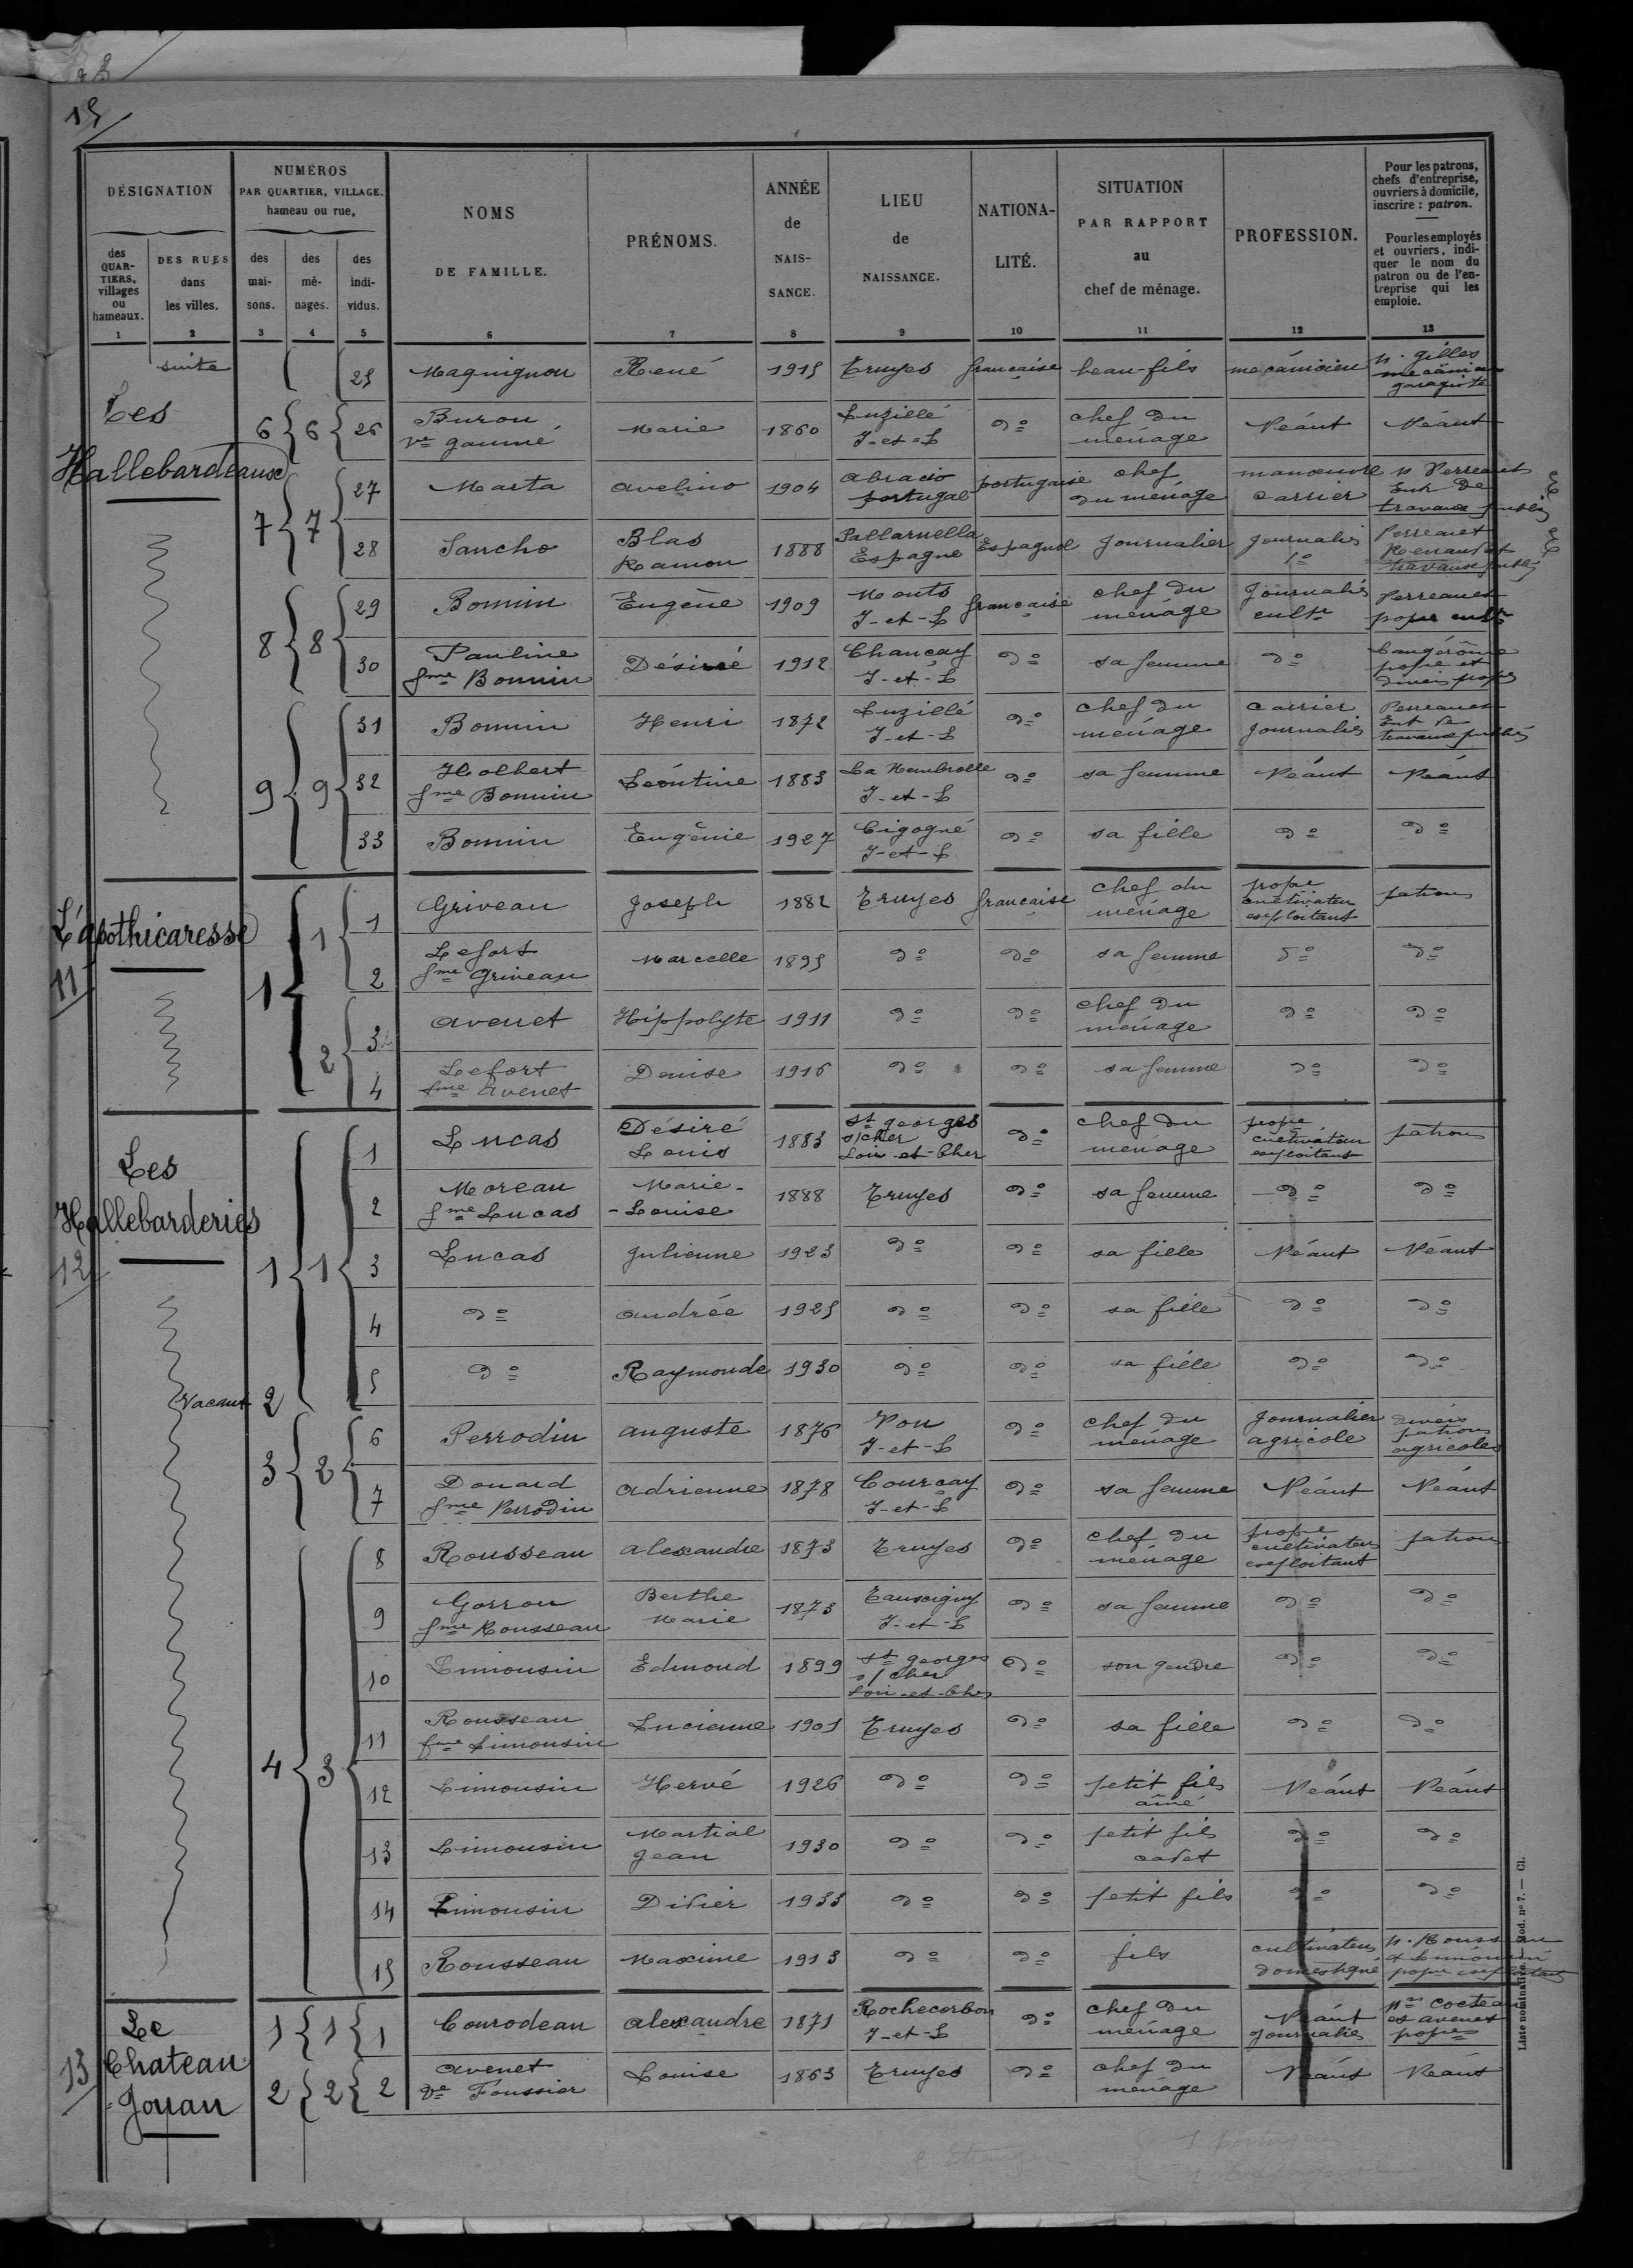 15
DÉSIGNATION
des QUARTIERS, villages ou hameaux.
DES RUES dans les villes.
NUMÉROS PAR QUARTIER, VILLAGE, hameau ou rue,
des maisons.
des ménages.
des individus.
NOMS DE FAMILLE.
PRÉNOMS.
ANNÉE de NAISSANCE.
LIEU de NAISSANCE.
NATIONALITÉ.
SITUATION PAR RAPPORT au chef de ménage.
PROFESSION.
Pour les patrons, chefs d'entreprise, ouvriers à domicile, inscrire : patron.
Pour les employés et ouvriers, indiquer le nom du patron ou de l'entreprise qui les emploie.
1 2 3 4 5 6 7 8 9 10 11 12 13
suite
25 Magnignon René 1915 Truyes française beau-fils mecánicien gilles garagiste
Les Hallebardeaux
6 6 26 Buron Vve gaumé Marie 1860 Luzillé I-et-L do chef du ménage Néant Néant
7 7 27 Marta avelino 1904 portugal portugaise chef du ménage manœuvre carrier Perreauet travaux
28 Sancho Blas Ramon 1888 Espagne Espagnol Journalier Journalier Perreauet
8 8 29 Bonnin Eugène 1909 Monts I-et-L française chef du ménage Journalier cultr Perreauet propre cultr
30 Pauline fme Bonnin Désiré 1912 Chançay I-et-L do sa femme do
9 9 31 Bonnin Henri 1872 Luzillé I-et-L do chef du ménage carrier Journalier Perreauet Ent de travaux
32 Holbert fme Bonnin Léontine 1883 La Membrolle I-et-L do sa femme Néant Néant
33 Bonnin Eugènie 1927 Cigogné I-et-L do sa fille do do
L'apothicaresse
11
1 1 1 Griveau Joseph 1882 Truyes française chef du ménage propre cultivateur exploitant patron
2 Lefort fme Griveau Marcelle 1895 do do sa femme do do
2 3 avenet Hippolyte 1911 do do chef du ménage do do
4 Lefort fme Avenet Denise 1916 do do sa femme do do
Les Hallebarderies
12
1 1 1 Lucas Désiré Louis 1883 St georges s/cher Loir-et-Cher do chef du ménage propre cultivateur exploitant patron
2 Moreau fme Lucas Marie-Louise 1888 Truyes do sa femme do do
3 Lucas Julienne 1923 do do sa fille Néant Néant
4 do andrée 1925 do do sa fille do do
5 do Raymonde 1930 do do sa fille do do
Vacant 2
3 2 6 Perrodin auguste 1876 Vou I-et-L do chef du ménage Journalier agricole divers patrons agricoles
7 Douard fme Perrodin adrienne 1878 Courçay I-et-L do sa femme Néant Néant
4 3 8 Rousseau alexandre 1873 Truyes do chef du ménage propre cultivateur exploitant patron
9 Gorron fme Rousseau Berthe Marie 1873 Tauxigny I-et-L do sa femme do do
10 Limousin Edmond 1899 St georges s/cher Loir-et-Cher do son gendre do do
11 Rousseau fme Limousin Lucienne 1901 Truyes do sa fille do do
12 Limousin Hervé 1926 do do petit fils aîné Néant Néant
13 Limousin Martial Jean 1930 do do petit fils cadet do do
14 Limousin Didier 1933 do do petit fils do do
15 Rousseau Maxime 1913 do do fils cultivateur domestique
Le Chateau-Jouan
13
1 1 1 Courodeau alexandre 1871 Rochecorbon I-et-L do chef du ménage Néant Journalier Cocteau et avenet propres
2 2 2 avenet Vve Foussier Louise 1863 Truyes do chef du ménage Néant Néant
Liste nominative. — Mod. n° 7. — Cl.